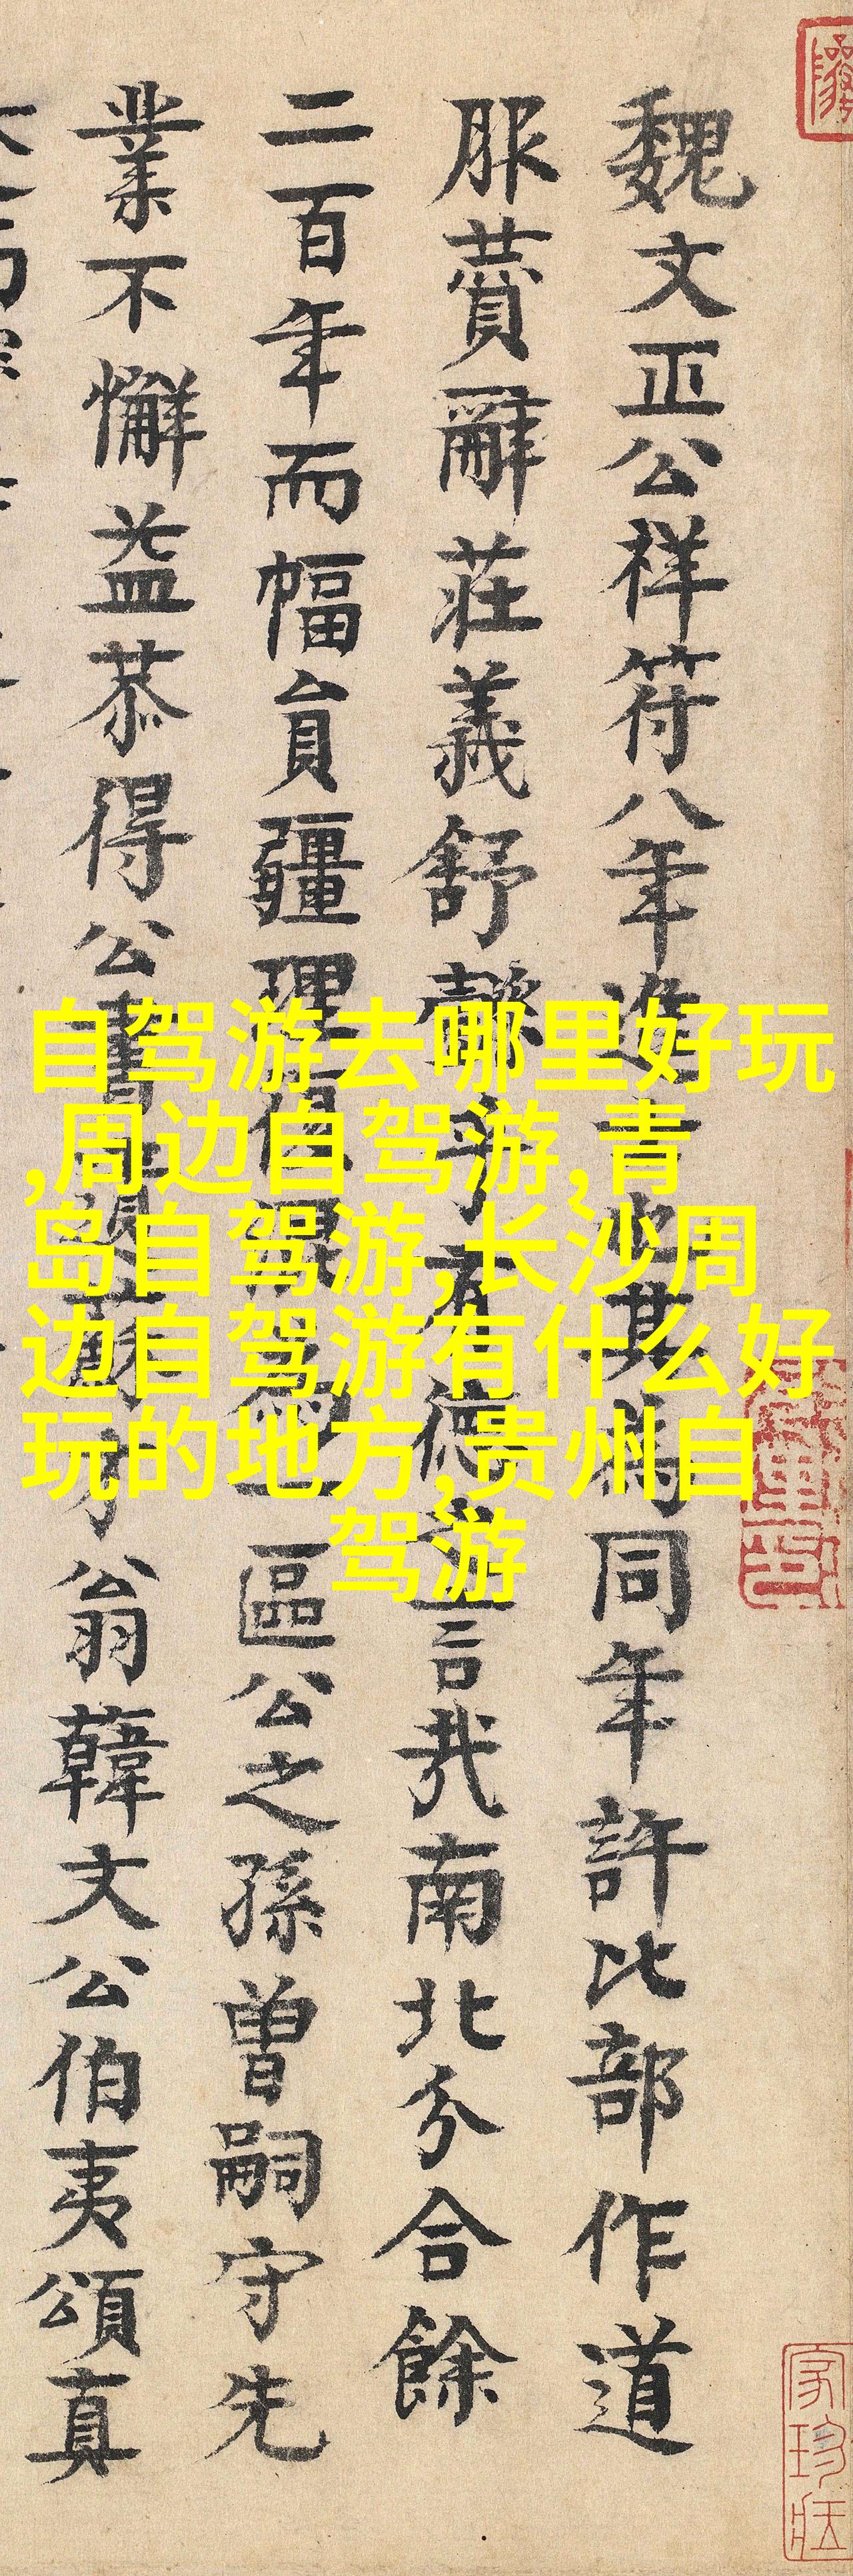 魏文正公祥符八年進士也其為同年許比部作道
服辭莊義舒乎有德之言哉南北分合餘
二百年而幅員疆理復混為一區公之孫曾嗣守先
業不懈益恭得公書蘇才翁韓文公伯夷頌真
自驾游去哪里好玩
,周边自驾游,青
岛自驾游,长沙周
边自驾游有什么好
玩的地方,贵州自
驾游